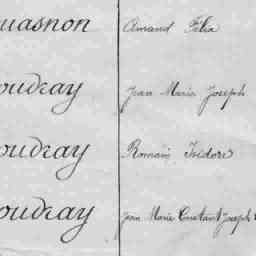 uasnon Amand Félix
oudray Jean Marie Joseph
oudray Romain Isidore
oudray Jean Marie Constant Joseph